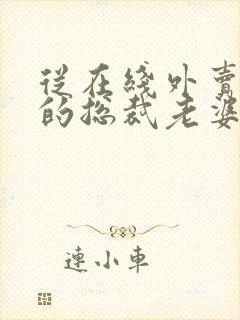 從在綫外賣
的總裁老婆
連小車